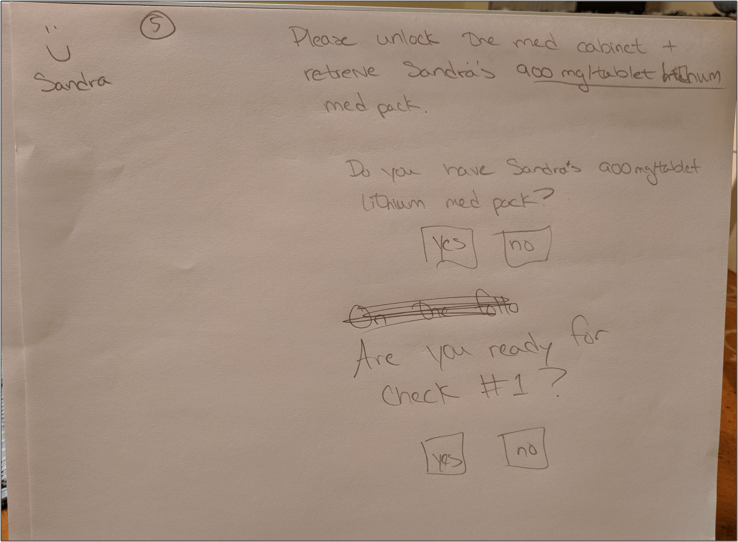 5
Sandra
Please unlock the med cabinet +
retrieve Sandra's 900 mg/tablet lithium
med pack.
Do you have Sandra's 900mg/tablet
lithium med pack?
yes no
On the follo
Are you ready for
check #1?
yes no